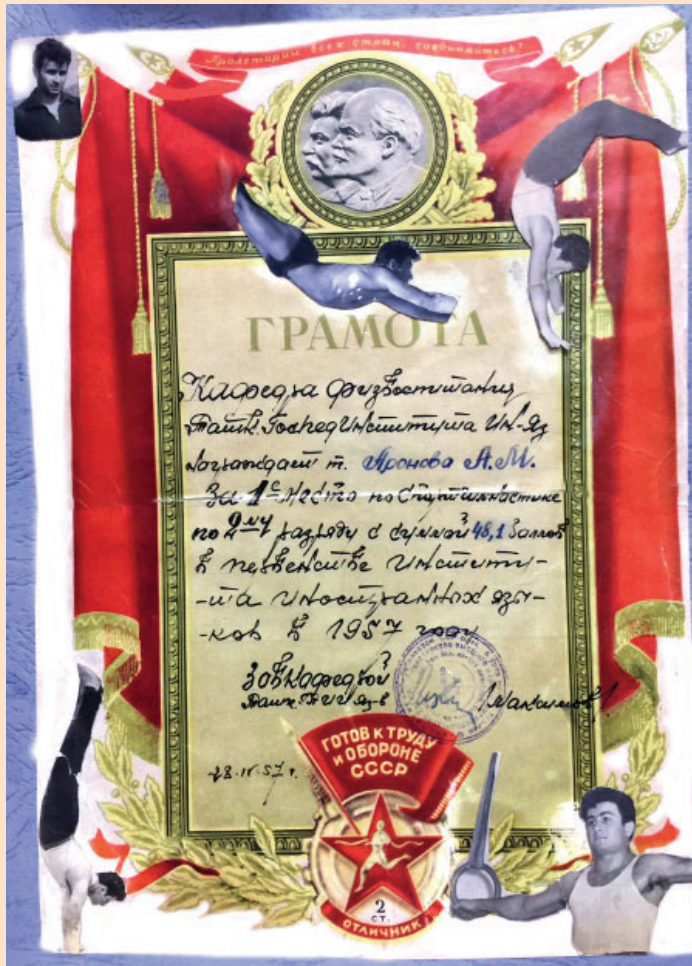 Пролетарии всех стран, соединяйтесь!
ГРАМОТА
Кафедра физвоспитания
Ташк. Госпединститута Ин-Яз
награждает т. Аронова А.М.
За 1е место по спортгимнастике
по 2му разряду с суммой 48,1 баллов
в первенстве институ-
-та иностранных язы-
-ков в 1957 году
Зав кафедрой
Ташк.
Максимов
28.IV.57 г.
ГОТОВ К ТРУДУ
И ОБОРОНЕ
СССР
2
СТ.
ОТЛИЧНИК